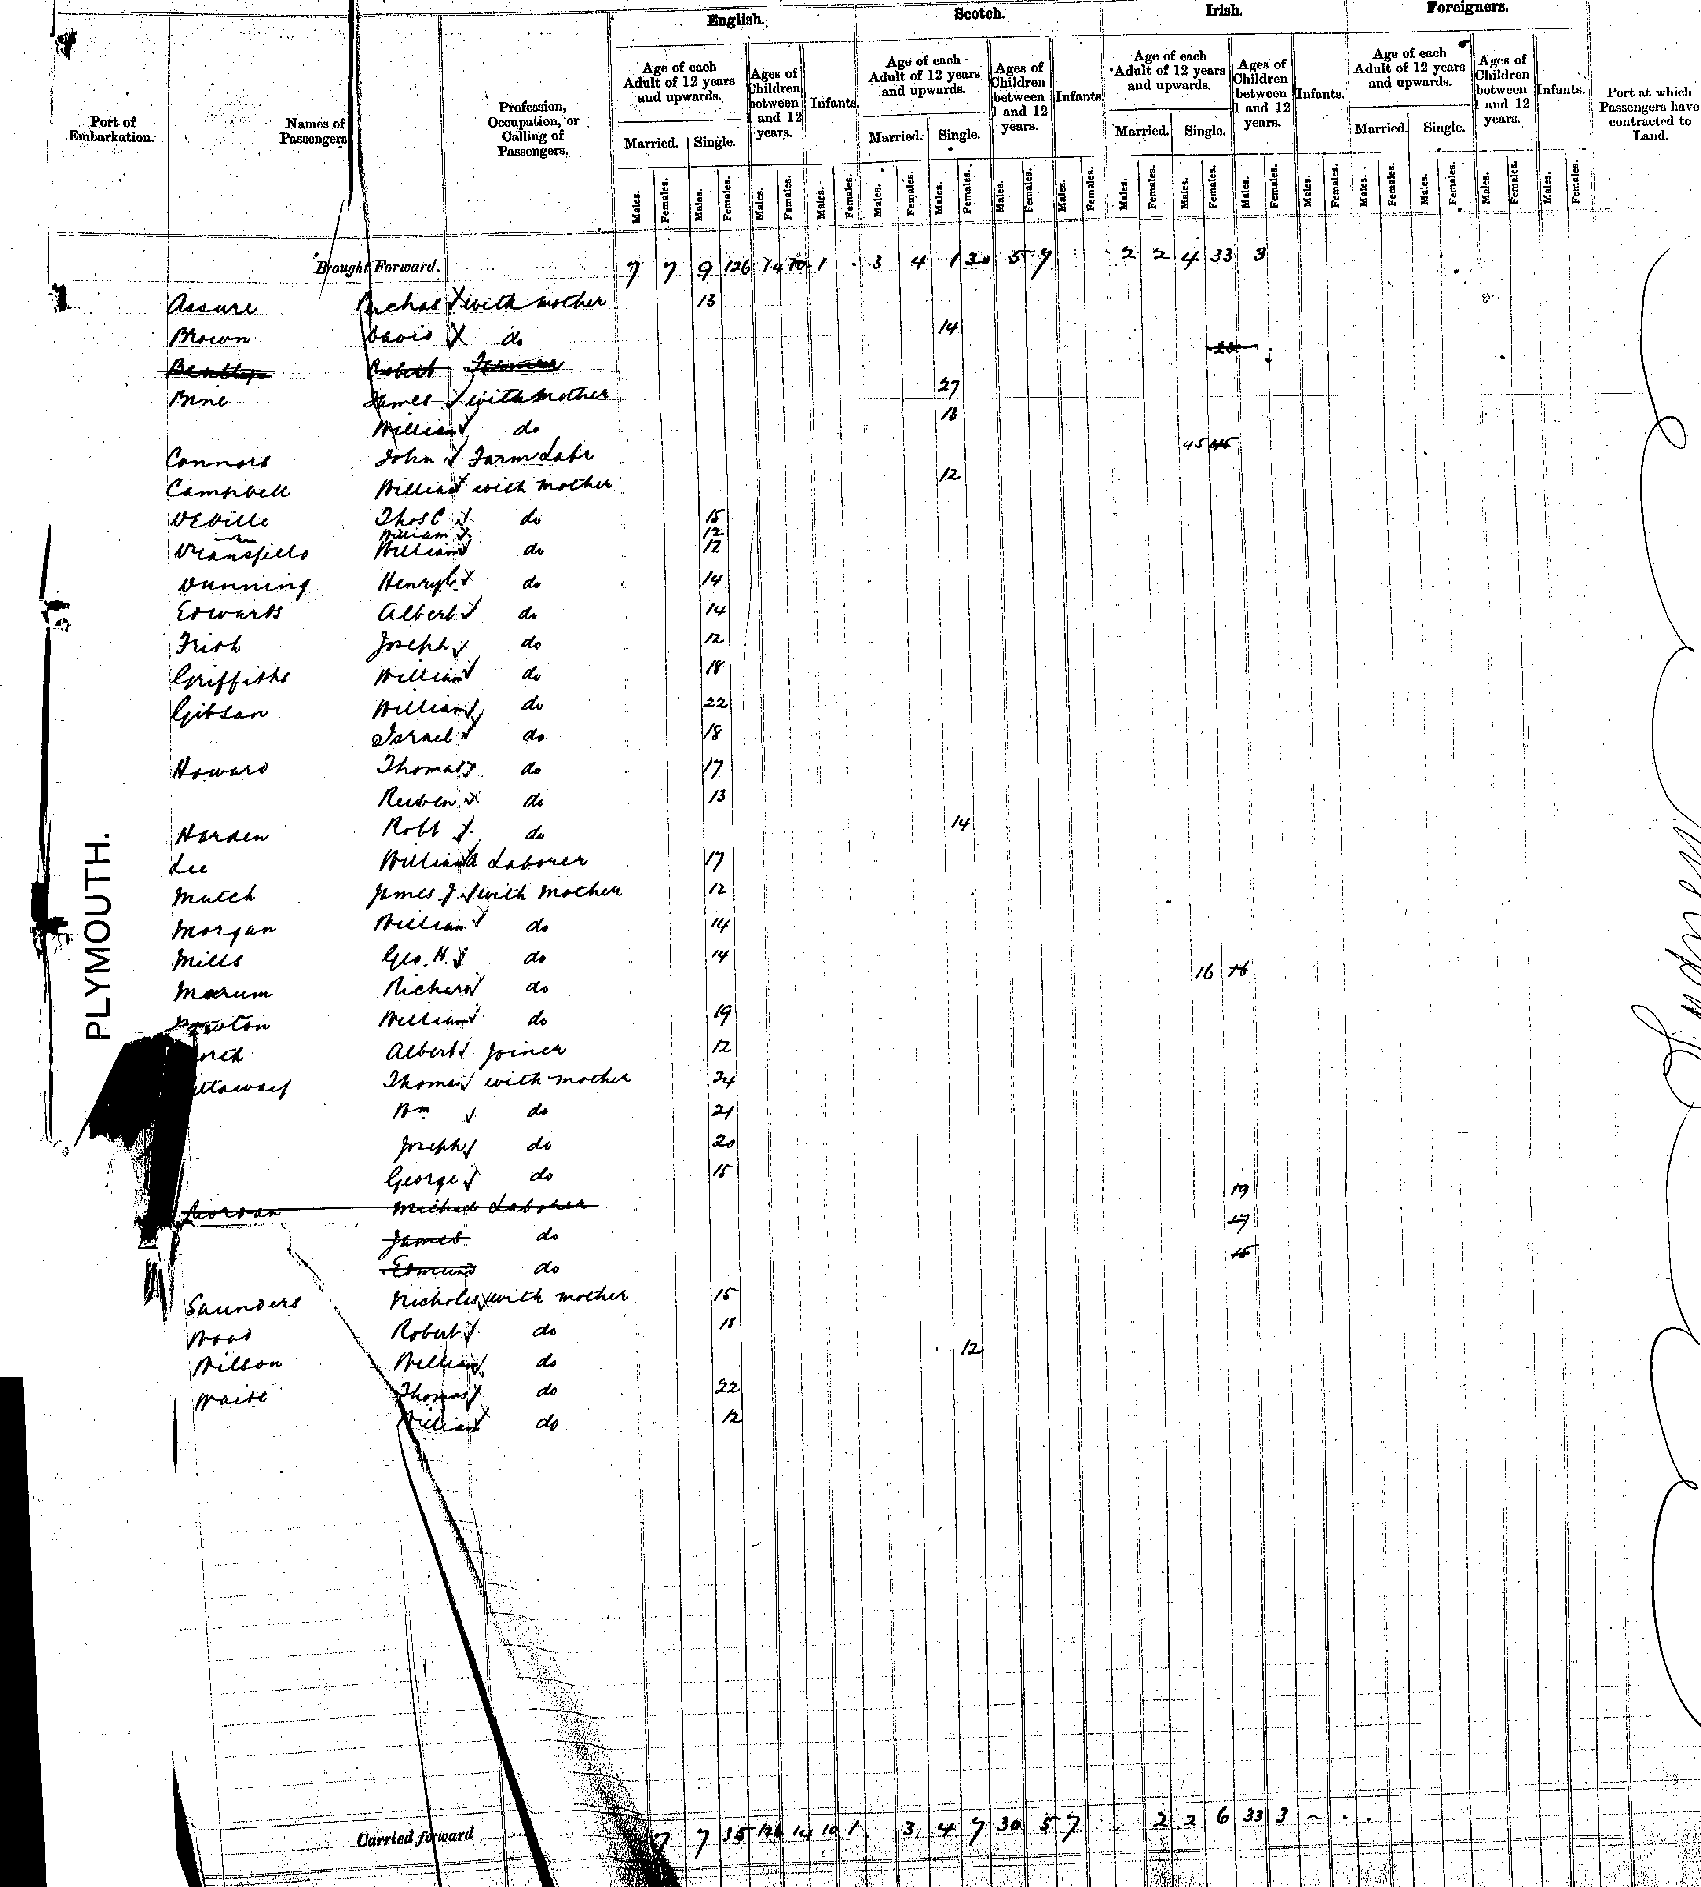 English. Scotch. Irish. Foreigners.
Port of Embarkation. Names of Passengers Profession, Occupation, or Calling of Passengers. Age of each Adult of 12 years and upwards. Ages of Children between 1 and 12 years. Infants. Age of each Adult of 12 years and upwards. Ages of Children between 1 and 12 years. Infants. Age of each Adult of 12 years and upwards. Ages of Children between 1 and 12 years. Infants. Age of each Adult of 12 years and upwards. Ages of Children between 1 and 12 years. Infants. Port at which Passengers have contracted to Land.
Married. Single. Married. Single. Married. Single. Married. Single.
Males. Females. Males. Females. Males. Females. Males. Females. Males. Females. Males. Females. Males. Females. Males. Females. Males. Females. Males. Females. Males. Females. Males. Females. Males. Females. Males. Females. Males. Females. Males. Females.
Brought Forward. 7 7 9 126 14 10 1 3 4 1 30 5 7 2 2 4 33 3
Assure with mother 13
Brown David do 14
Robert Farmer
James with mother 27
William do 13
Connors John Farm Labr 45
Campbell William with mother 12
DeVille Thos C do 15
William 12
Dransfield William do 12
Dunning Henry do 14
Edwards Albert do 14
Irish Joseph do 12
Griffiths William do 18
Gibson William do 22
Israel do 18
Howard Thomas do 17
Reuben do 13
Harden Robt do 14
Lee William Laborer 17
Mutch James J with mother 12
Morgan William do 14
Mills Geo. H. do 14
Marum Richard do 16 16
William do 19
Albert Joiner 12
Thomas with mother 24
Wm do 21
Joseph do 20
George do 15
Michael Laborer 19
James do 17
Edmund do 15
Saunders Nicholas with mother 15
Wood Robert do 18
Wilson William do 12
Waite Thomas do 22
William do 12
PLYMOUTH.
Sydney
Carried forward 7 7 35 126 14 10 1 3 4 7 30 5 7 2 2 6 33 3